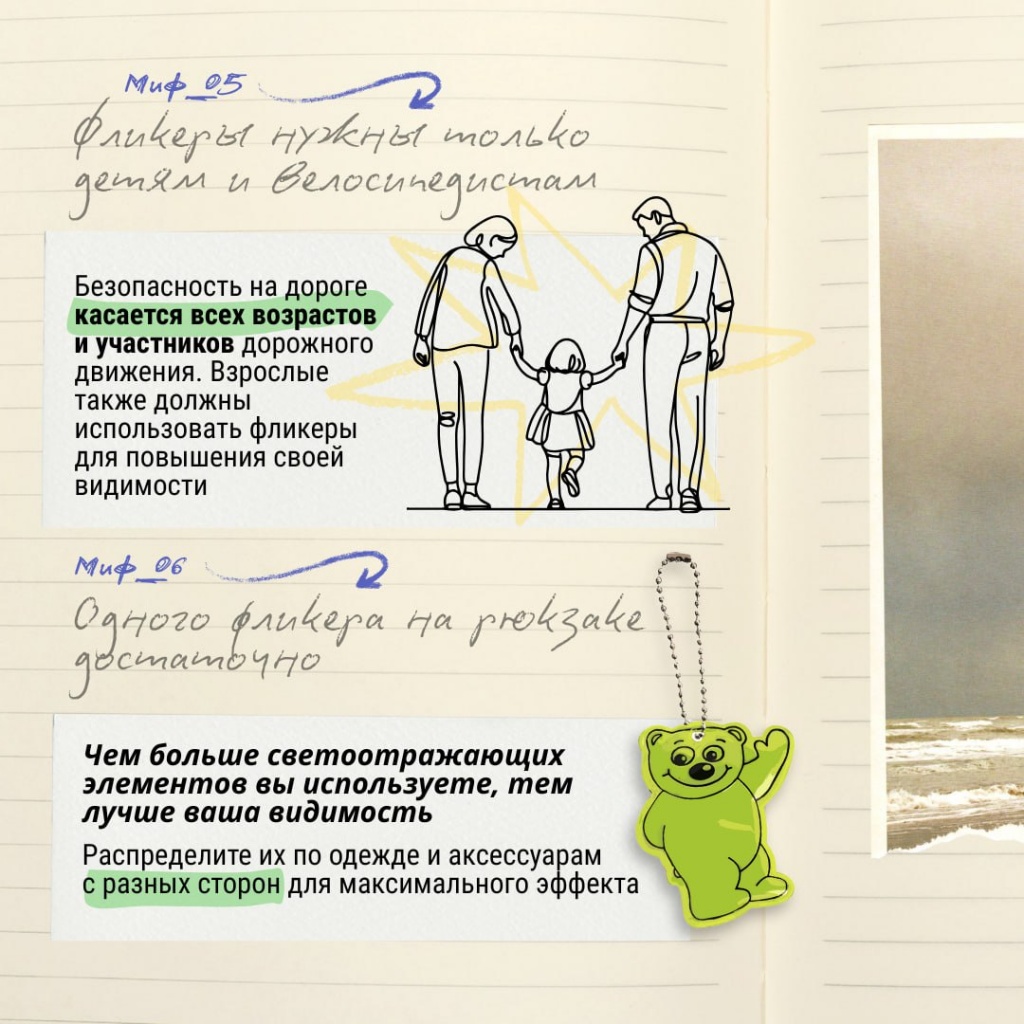 Миф_05
Фликеры нужны только
детям и велосипедистам
Безопасность на дороге
касается всех возрастов
и участников дорожного
движения. Взрослые
также должны
использовать фликеры
для повышения своей
видимости
Миф_06
Одного фликера на рюкзаке
достаточно
Чем больше светоотражающих
элементов вы используете, тем
лучше ваша видимость
Распределите их по одежде и аксессуарам
с разных сторон для максимального эффекта